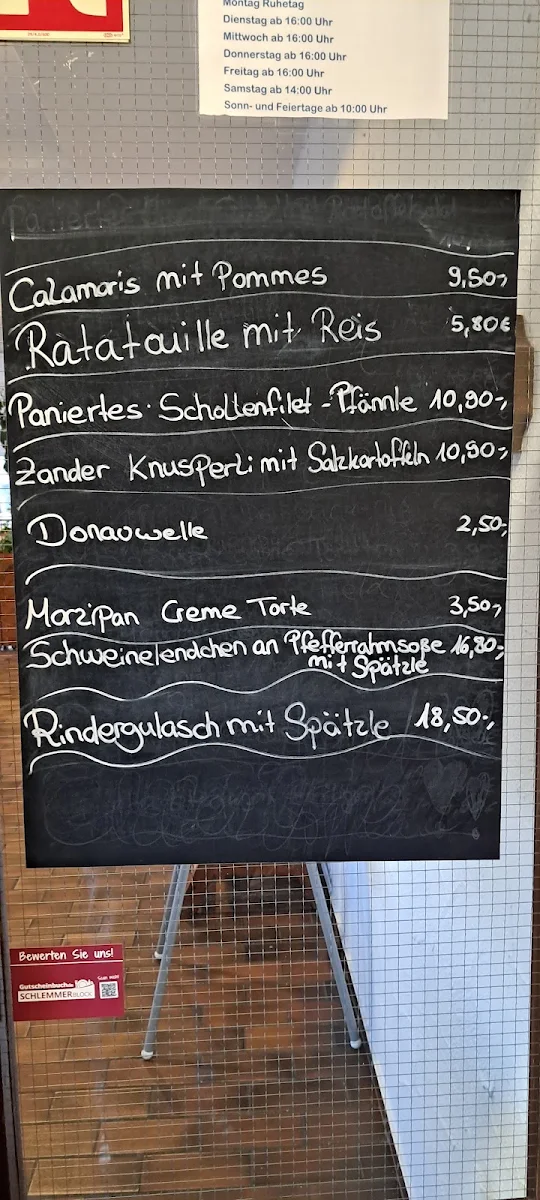 Montag Ruhetag
Dienstag ab 16:00 Uhr
Mittwoch ab 16:00 Uhr
Donnerstag ab 16:00 Uhr
Freitag ab 16:00 Uhr
Samstag ab 14:00 Uhr
Sonn- und Feiertage ab 10:00 Uhr
Calamaris mit Pommes 9,50,-
Ratatouille mit Reis 5,80€
Paniertes Schollenfilet - Pfännle 10,90-,
Zander Knusperli mit Salzkartoffeln 10,90-,
Donauwelle 2,50-,
Marzipan Creme Torte 3,50,-
Schweinelendchen an Pfefferrahmsoße 16,80-,
mit Spätzle
Rindergulasch mit Spätzle 18,50-,
Bewerten Sie uns!
Gutscheinbuch.de
SCHLEMMERBLOCK